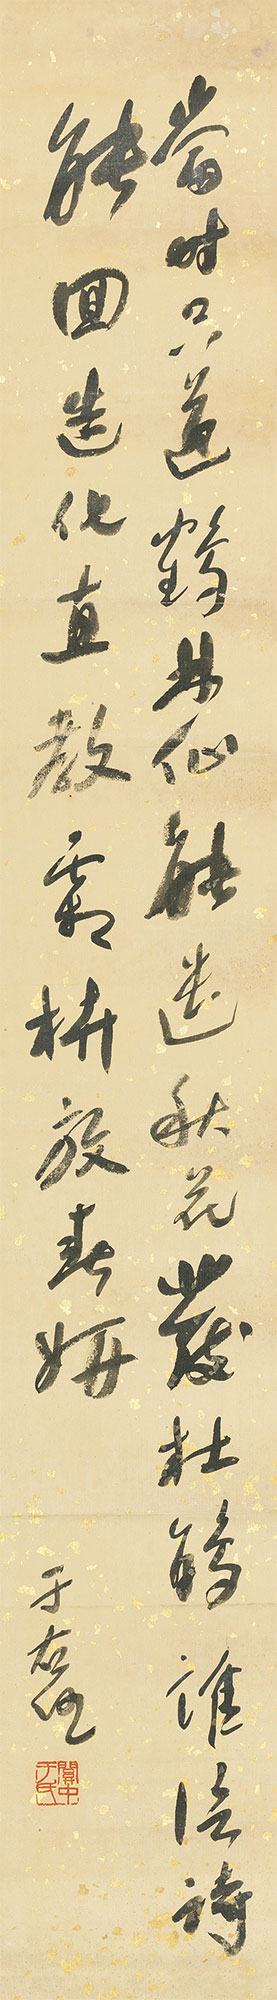 當時只道鶴林仙能遣秋花發杜鵑誰信詩
能回造化直教霜枿放春妍
于右任
關中于氏